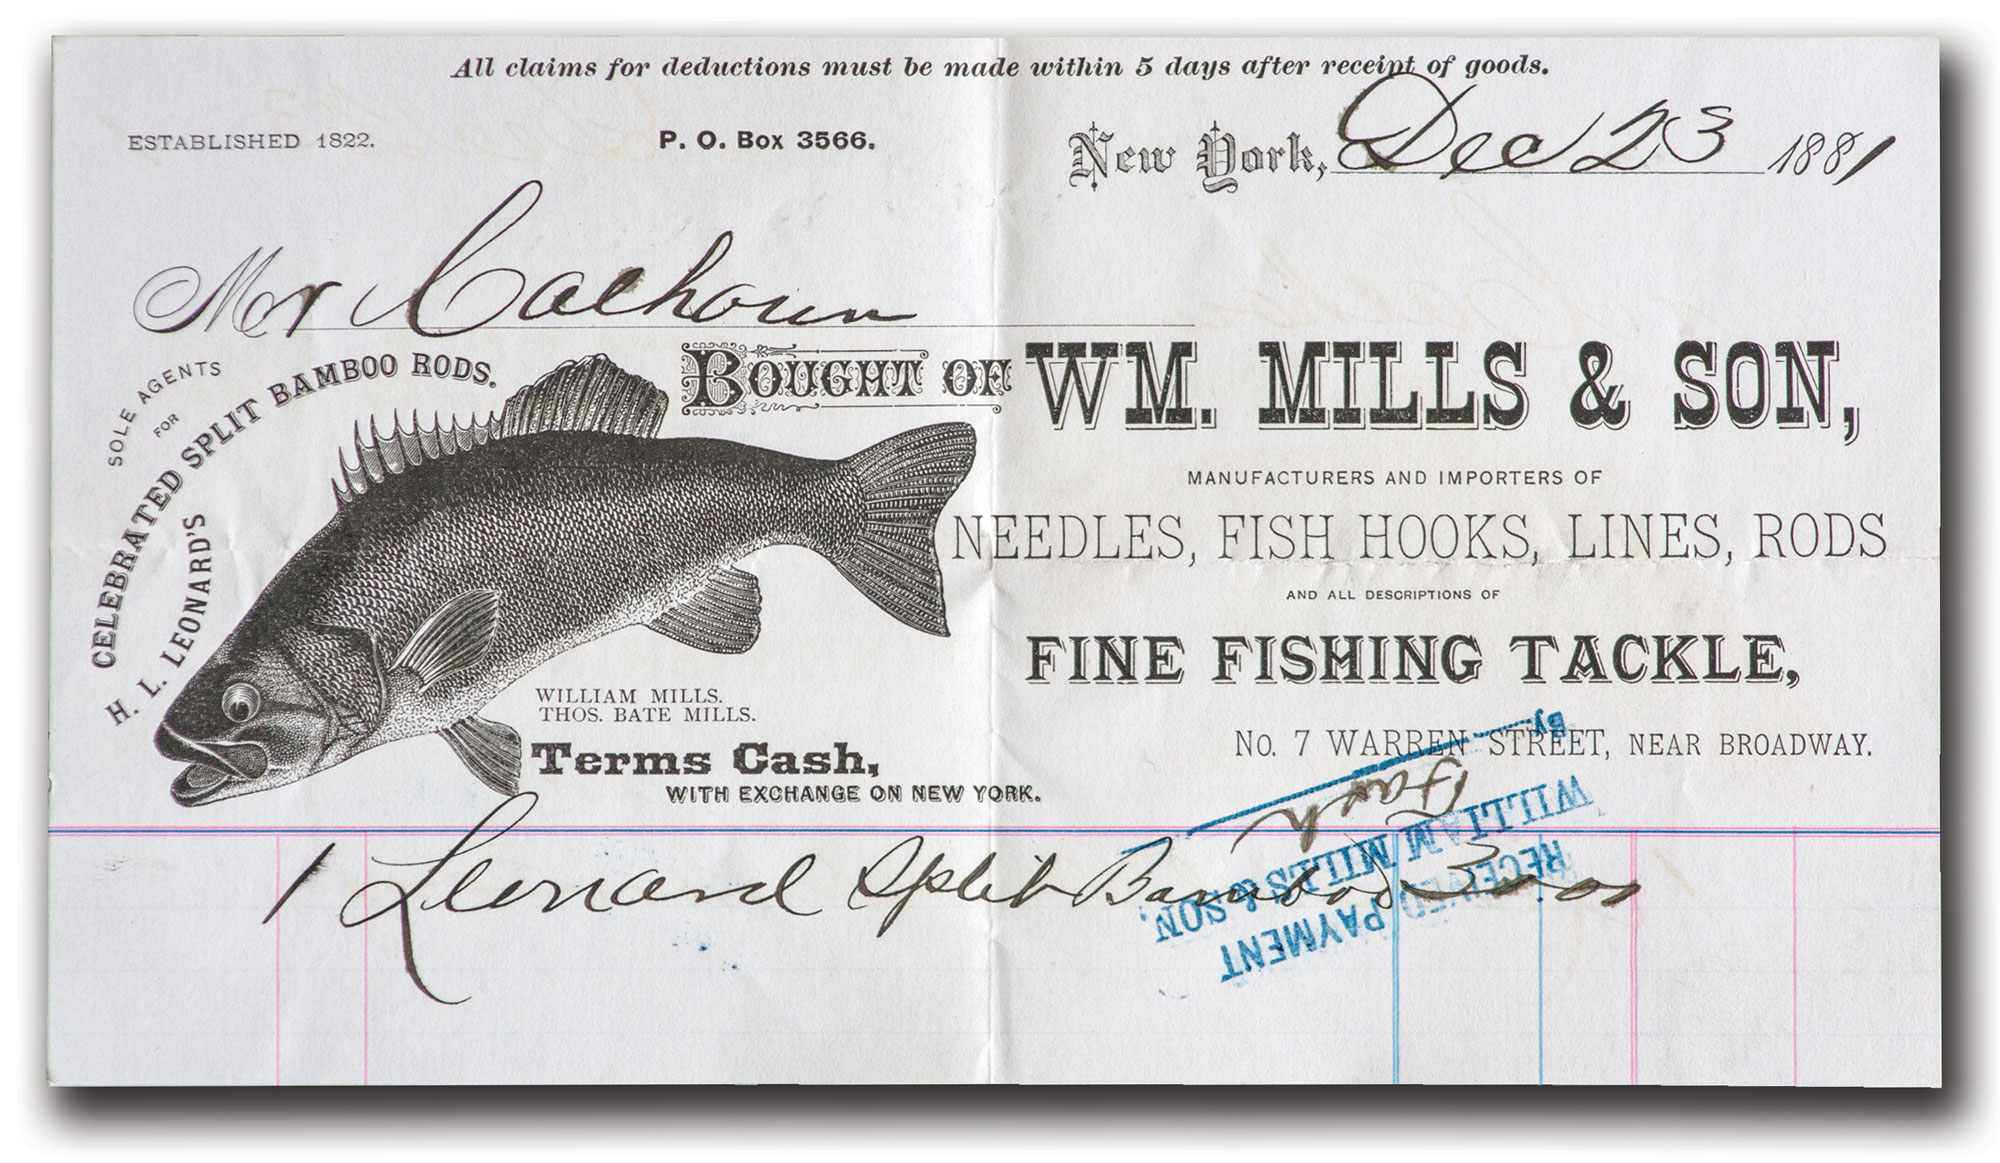 All claims for deductions must be made within 5 days after receipt of goods.
ESTABLISHED 1822.
P. O. Box 3566.
New York, Dec 23 1881
Mr Calhoun
SOLE AGENTS
FOR
CELEBRATED SPLIT BAMBOO RODS.
H. L. LEONARD'S
BOUGHT OF WM. MILLS & SON,
MANUFACTURERS AND IMPORTERS OF
NEEDLES, FISH HOOKS, LINES, RODS
AND ALL DESCRIPTIONS OF
FINE FISHING TACKLE,
No. 7 WARREN STREET, NEAR BROADWAY.
WILLIAM MILLS.
THOS. BATE MILLS.
Terms Cash,
WITH EXCHANGE ON NEW YORK.
1 Leonard Split Bamboo
RECEIVED PAYMENT
WILLIAM MILLS & SON,
By